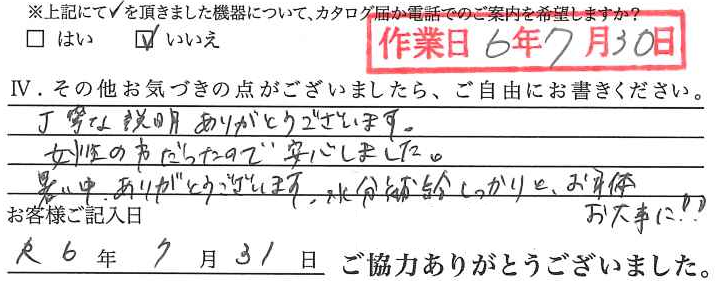 ※上記にて✓を頂きました機器について、カタログ届か電話でのご案内を希望しますか？
□ はい ☑ いいえ
作業日 6年7月30日
Ⅳ．その他お気づきの点がございましたら、ご自由にお書きください。
丁寧な説明ありがとうございます。
女性の方だったので安心しました。
暑い中、ありがとうございます。水分補給しっかりと、お身体
お大事に!!
お客様ご記入日
R6年7月31日 ご協力ありがとうございました。